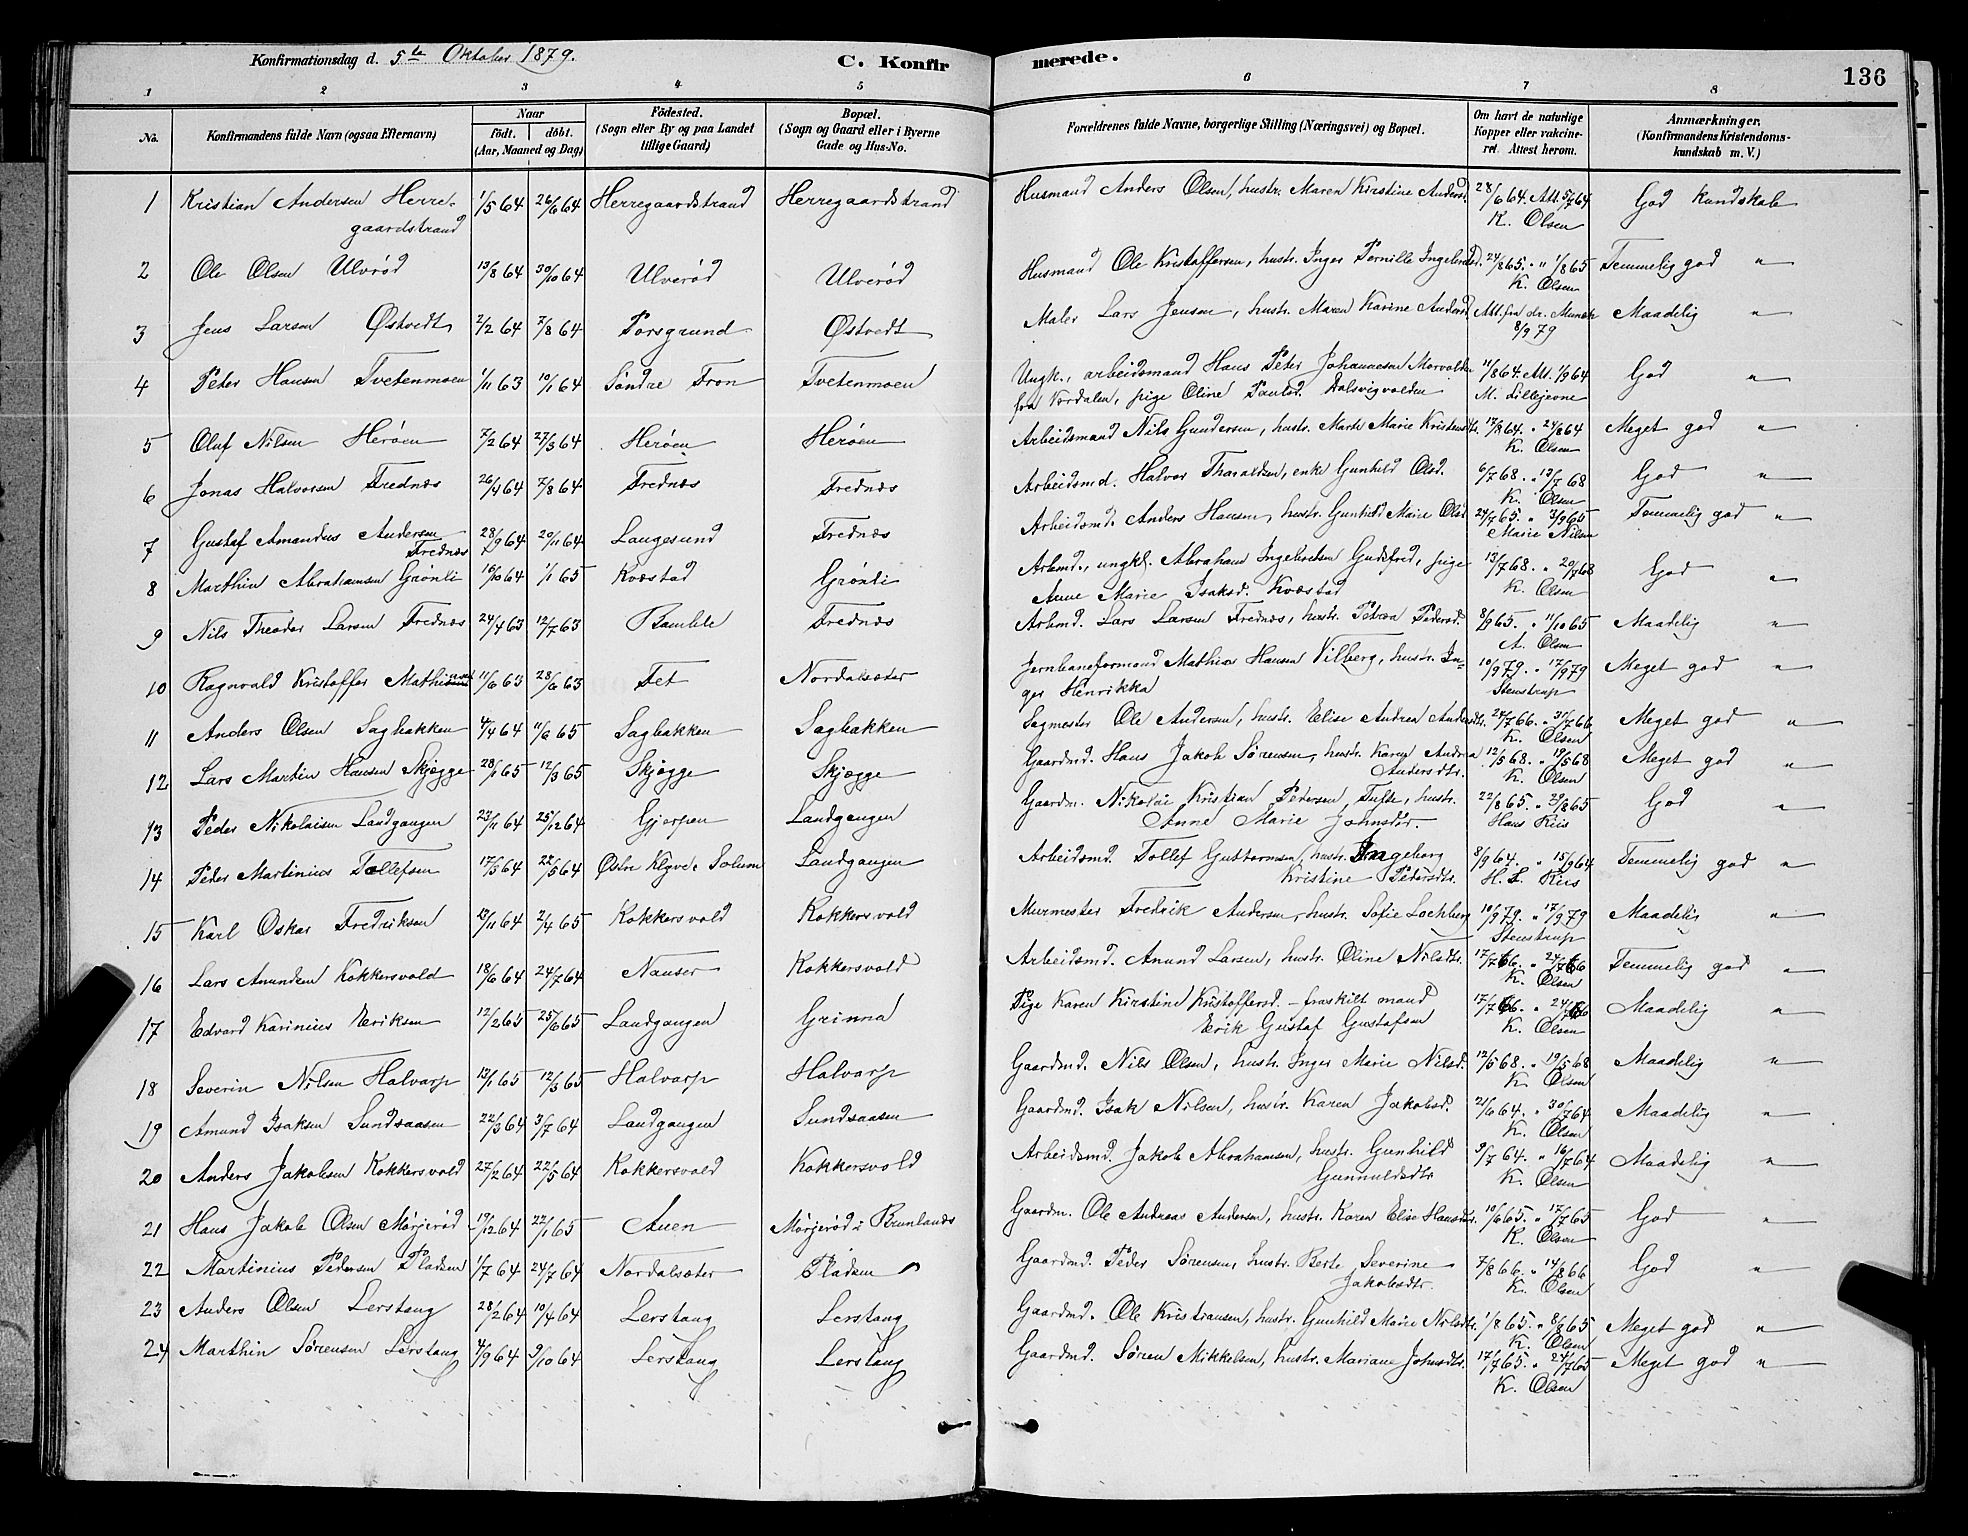 Konfirmationsdag d. 5te Oktober 1879.
C. Konfirmerede.
136
1 2 3 4 5 6 7 8
No. Konfirmandens fulde Navn (ogsaa Efternavn) Naar født. døbt. (Aar, Maaned og Dag) Födested. (Sogn eller By og paa Landet tillige Gaard) Bopæl. (Sogn og Gaard eller i Byerne Gade og Hus-No. Forældrenes fulde Navne, borgerlige Stilling (Næringsvei) og Bopæl. Om havt de naturlige Kopper eller vakcineret. Attest herom. Anmærkninger. (Konfirmandens Kristendomskundskab m. V.)
1 Kristian Andersen Herregaardstrand 1/5 64 26/6 64 Herregaardstrand Herregaardstrand Husmand Anders Olsen, hustr. Maren Kirstine Andersd. 28/6 64. Att. 5/7 64 K. Olsen God kundskab
2 Ole Olsen Ulverød 13/8 64 30/10 64 Ulverød Ulverød Husmand Ole Kristoffersen, hustr. Inger Pernille Ingebretsd. 24/8 65. " 1/8 65 K. Olsen Temmelig god "
3 Jens Larsen Østvedt 2/2 64 7/8 64 Porsgrund Østvedt Maler Lars Jensen, hustr. Maren Karine Andersd. Att. fra dr. Munch 8/9 79 Maadelig "
4 Peter Hansen Tvetenmoen 1/11 63 10/1 64 Söndre Fron Tvetenmoen Ungk., arbeidsmand Hans Peter Johannesen Morvolden fra Vordalen, pige Oline Paulsd. Dalsvigvolden 11/8 64. Att. 1/9 64 M. Lillejevne God "
5 Oluf Nilsen Herøen 7/2 64 27/3 64 Herøen Herøen Arbeidsmand Nils Gundersen, hustr. Marte Marie Kristensdtr. 17/8 64. " 24/8 64 K. Olsen Meget god "
6 Jonas Halvorsen Frednæs 26/4 64 7/8 64 Frednæs Frednæs Arbeidsmd. Halvor Tharaldsen, enke Gunhild Olsd. 6/7 68. " 13/7 68 K. Olsen God "
7 Gustaf Amandus Andersen Frednæs 28/9 64 20/11 64 Langesund Frednæs Arbeidsmd. Anders Hansen, hustr. Gunhild Marie Olsd. 24/7 65. " 3/9 65 Marie Nilsen Temmelig god "
8 Marthin Abrahamsen Grønli 16/10 64 1/1 65 Kvæstad Grønli Arbmd., ungkl. Abraham Ingebretsen Gudsfred, pige Anne Marie Isaksd. Kvæstad 13/7 68. " 20/7 68 K. Olsen God "
9 Nils Theodor Larsen Frednæs 24/4 63 12/7 63 Bamble Frednæs Arbmd. Lars Larsen Frednæs, hustr. Petrea Pedersd. 8/9 65. " 11/10 65 A. Olsen Maadelig "
10 Ragnvald Kristoffer Mathisen 11/6 63 28/6 63 Fet Nordalsæter Jernbaneformand Mathias Hansen Vilberg, hustr. Inger Henrikka 10/9 79. " 17/9 79 Stenstrup Meget god "
11 Anders Olsen Sagbakken 4/4 64 11/6 65 Sagbakken Sagbakken Sagmester Ole Andersen, hustr. Elise Andrea Andersdtr. 24/7 66. " 31/7 66 K. Olsen Meget god "
12 Lars Martin Hansen Skjøgge 28/1 65 12/3 65 Skjøgge Skjøgge Gaardmd. Hans Jakob Sørensen, hustr. Karen Andrea Andersdtr. 12/5 68. " 19/5 68 K. Olsen Meget god "
13 Peder Nikolaisen Landgangen 23/11 64 25/12 64 Gjerpen Landgangen Gaardm. Nikolai Kristian Pedersen Tufte, hustr. Anne Marie Johnsdtr. 22/8 65. " 29/8 65 Hans Riis God "
14 Peder Martinius Tollefsen 17/3 64 22/5 64 Østre Klyve i Solum Landgangen Arbeidsmd. Tollef Guttormsen, hustr. Ingeborg Kristine Pedersdtr. 8/9 64. " 15/9 64 H. L. Riis Temmelig god "
15 Karl Oskar Fredriksen 13/11 64 2/4 65 Kokkersvold Kokkersvold Murmester Fredrik Andersen, hustr. Sofie Lochberg 10/9 79. " 17/9 79 Stenstrup Maadelig "
16 Lars Amundsen Kokkersvold 18/6 64 24/7 64 Nauser Kokkersvold Arbeidsmd. Amund Larsen, hustr. Oline Nilsdtr. 17/7 66. " 24/7 66 K. Olsen Temmelig god "
17 Edvard Karinius Eriksen 12/2 65 25/6 65 Landgangen Grinna Pige Karen Kirstine Kristoffersd. - fraskilt mand Erik Gustaf Gustafsen 17/7 66. " 24/7 66 K. Olsen Maadelig "
18 Severin Nilsen Halvarp 13/1 65 12/3 65 Halvarp Halvarp Gaardmd. Nils Olsen, hustr. Inger Marie Nilsd. 12/5 68. " 19/5 68 K. Olsen Maadelig "
19 Amund Isaksen Sundsaasen 22/3 64 3/7 64 Landgangen Sundsaasen Gaardmd. Isak Nilsen, hustr. Karen Jakobsd. 21/6 64. " 30/7 64 K. Olsen Maadelig "
20 Anders Jakobsen Kokkersvold 27/2 64 22/5 64 Kokkersvold Kokkersvold Arbeidsmd. Jakob Abrahamsen, hustr. Gunhild Gunnuldsdtr. 9/7 64. " 16/7 64 K. Olsen Maadelig "
21 Hans Jakob Olsen Mørjerød 19/12 64 22/1 65 Auen Mørjerød i Brunlanæs Gaardm. Ole Andreas Andersen, hustr. Karen Elise Hansdtr. 10/6 65. " 17/7 65 K. Olsen God "
22 Martinius Pedersen Pladsen 1/7 64 24/7 64 Nordalsæter Pladsen Gaardmd. Peder Sørensen, hustr. Berte Severine Jakobsdtr. 7/8 66. " 14/8 66 K. Olsen God "
23 Anders Olsen Lerstang 28/2 64 10/4 64 Lerstang Lerstang Gaardmd. Ole Kristiansen, hustr. Gunhild Marie Nilsdtr. 1/8 65. " 8/8 65 K. Olsen Meget god "
24 Marthin Sørensen Lerstang 4/9 64 9/10 64 Lerstang Lerstang Gaardmd. Søren Mikkelsen, hustr. Mariane Johnsdtr. 17/7 65. " 24/7 65 K. Olsen Meget god "